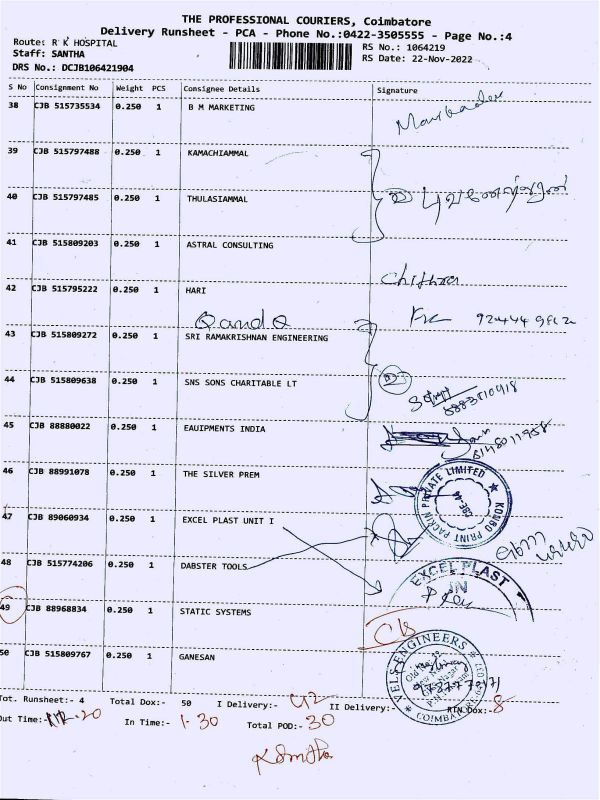 THE PROFESSIONAL COURIERS, Coimbatore
Delivery Runsheet - PCA - Phone No.:0422-3505555 - Page No.:4
Route: R K HOSPITAL
RS No.: 1064219
Staff: SANTHA
RS Date: 22-Nov-2022
DRS No.: DCJB106421904
S No Consignment No Weight PCS Consignee Details Signature
38 CJB 515735534 0.250 1 B M MARKETING
39 CJB 515797488 0.250 1 KAMACHIAMMAL
40 CJB 515797485 0.250 1 THULASIAMMAL
41 CJB 515809203 0.250 1 ASTRAL CONSULTING
Chithra
42 CJB 515795222 0.250 1 HARI
43 CJB 515809272 0.250 1 SRI RAMAKRISHNAN ENGINEERING
44 CJB 515809638 0.250 1 SNS SONS CHARITABLE LT
45 CJB 88880022 0.250 1 EAUIPMENTS INDIA
46 CJB 88991078 0.250 1 THE SILVER PREM
KOMBO PRINT PACKIN PRIVATE LIMITED
CBE-44
47 CJB 89060934 0.250 1 EXCEL PLAST UNIT I
48 CJB 515774206 0.250 1 DABSTER TOOLS
EXCEL PLAST
49 CJB 88968834 0.250 1 STATIC SYSTEMS
50 CJB 515809767 0.250 1 GANESAN
VELS ENGINEERS
COIMBATORE
Tot. Runsheet:- 4 Total Dox:- 50 I Delivery:- 42 II Delivery:- RTN Dox:- 8
Out Time:- In Time:- 1-30 Total POD:- 30